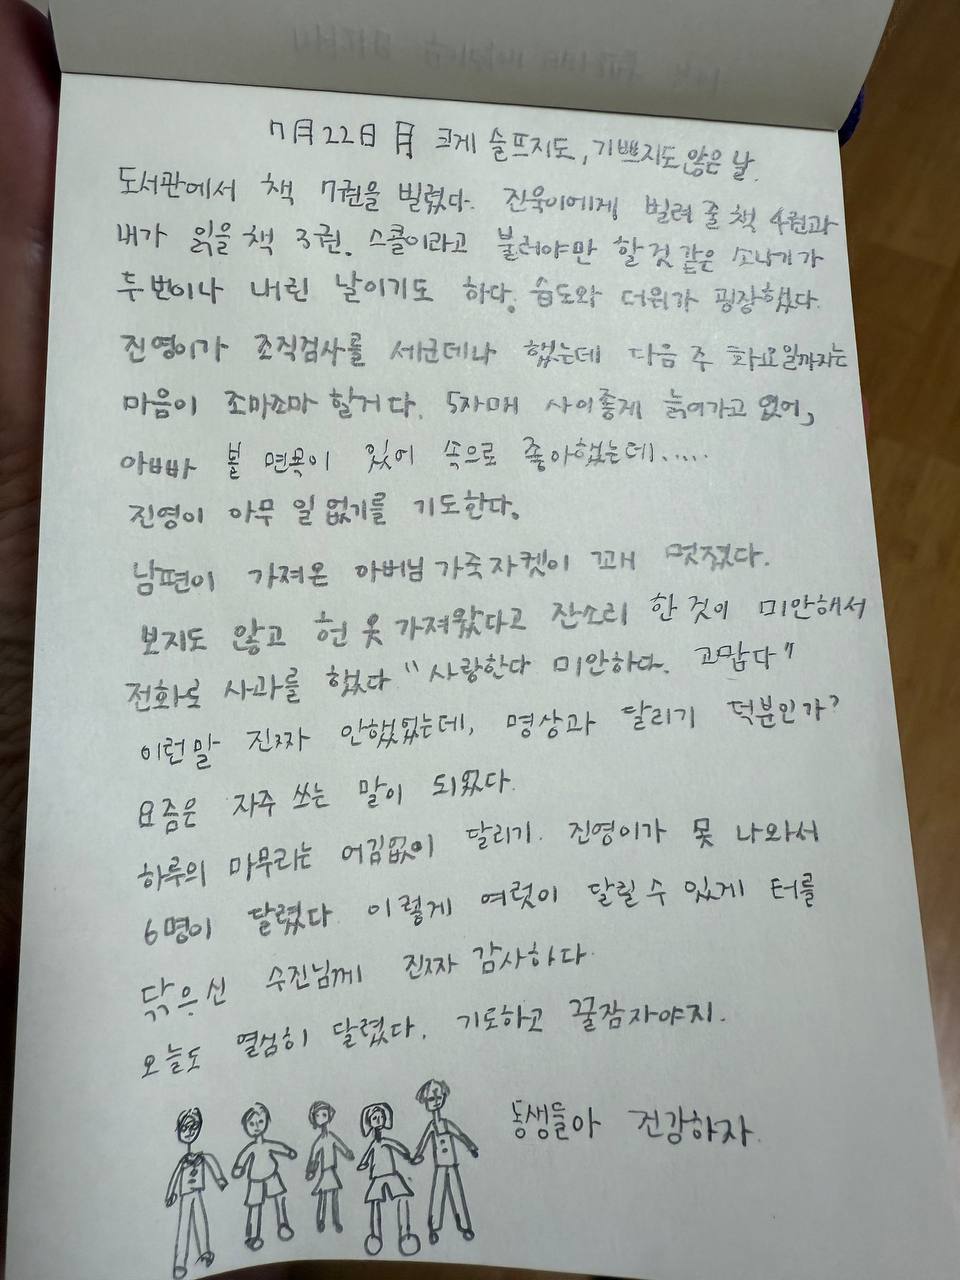 7月22日 月 크게 슬프지도, 기쁘지도 않은 날.
도서관에서 책 7권을 빌렸다. 진욱이에게 빌려 줄 책 4권과
내가 읽을 책 3권. 스콜이라고 불러야만 할 것 같은 소나기가
두번이나 내린 날이기도 하다. 습도와 더위가 굉장했다.
진영이가 조직검사를 세군데나 했는데 다음 주 화요일까지는
마음이 조마조마 할거다. 5자매 사이좋게 늙어가고 있어,
아빠 볼 면목이 있어 속으로 좋아했는데.....
진영이 아무 일 없기를 기도한다.
남편이 가져온 아버님 가죽자켓이 꽤 멋졌다.
보지도 않고 헌 옷 가져왔다고 잔소리 한 것이 미안해서
전화로 사과를 했다 "사랑한다 미안하다. 고맙다"
이런말 진짜 안했었는데, 명상과 달리기 덕분인가?
요즘은 자주 쓰는 말이 되었다.
하루의 마무리는 어김없이 달리기. 진영이가 못 나와서
6명이 달렸다 이렇게 여럿이 달릴 수 있게 터를
닦으신 수진님께 진짜 감사하다.
오늘도 열심히 달렸다. 기도하고 꿀잠자야지.
동생들아 건강하자.